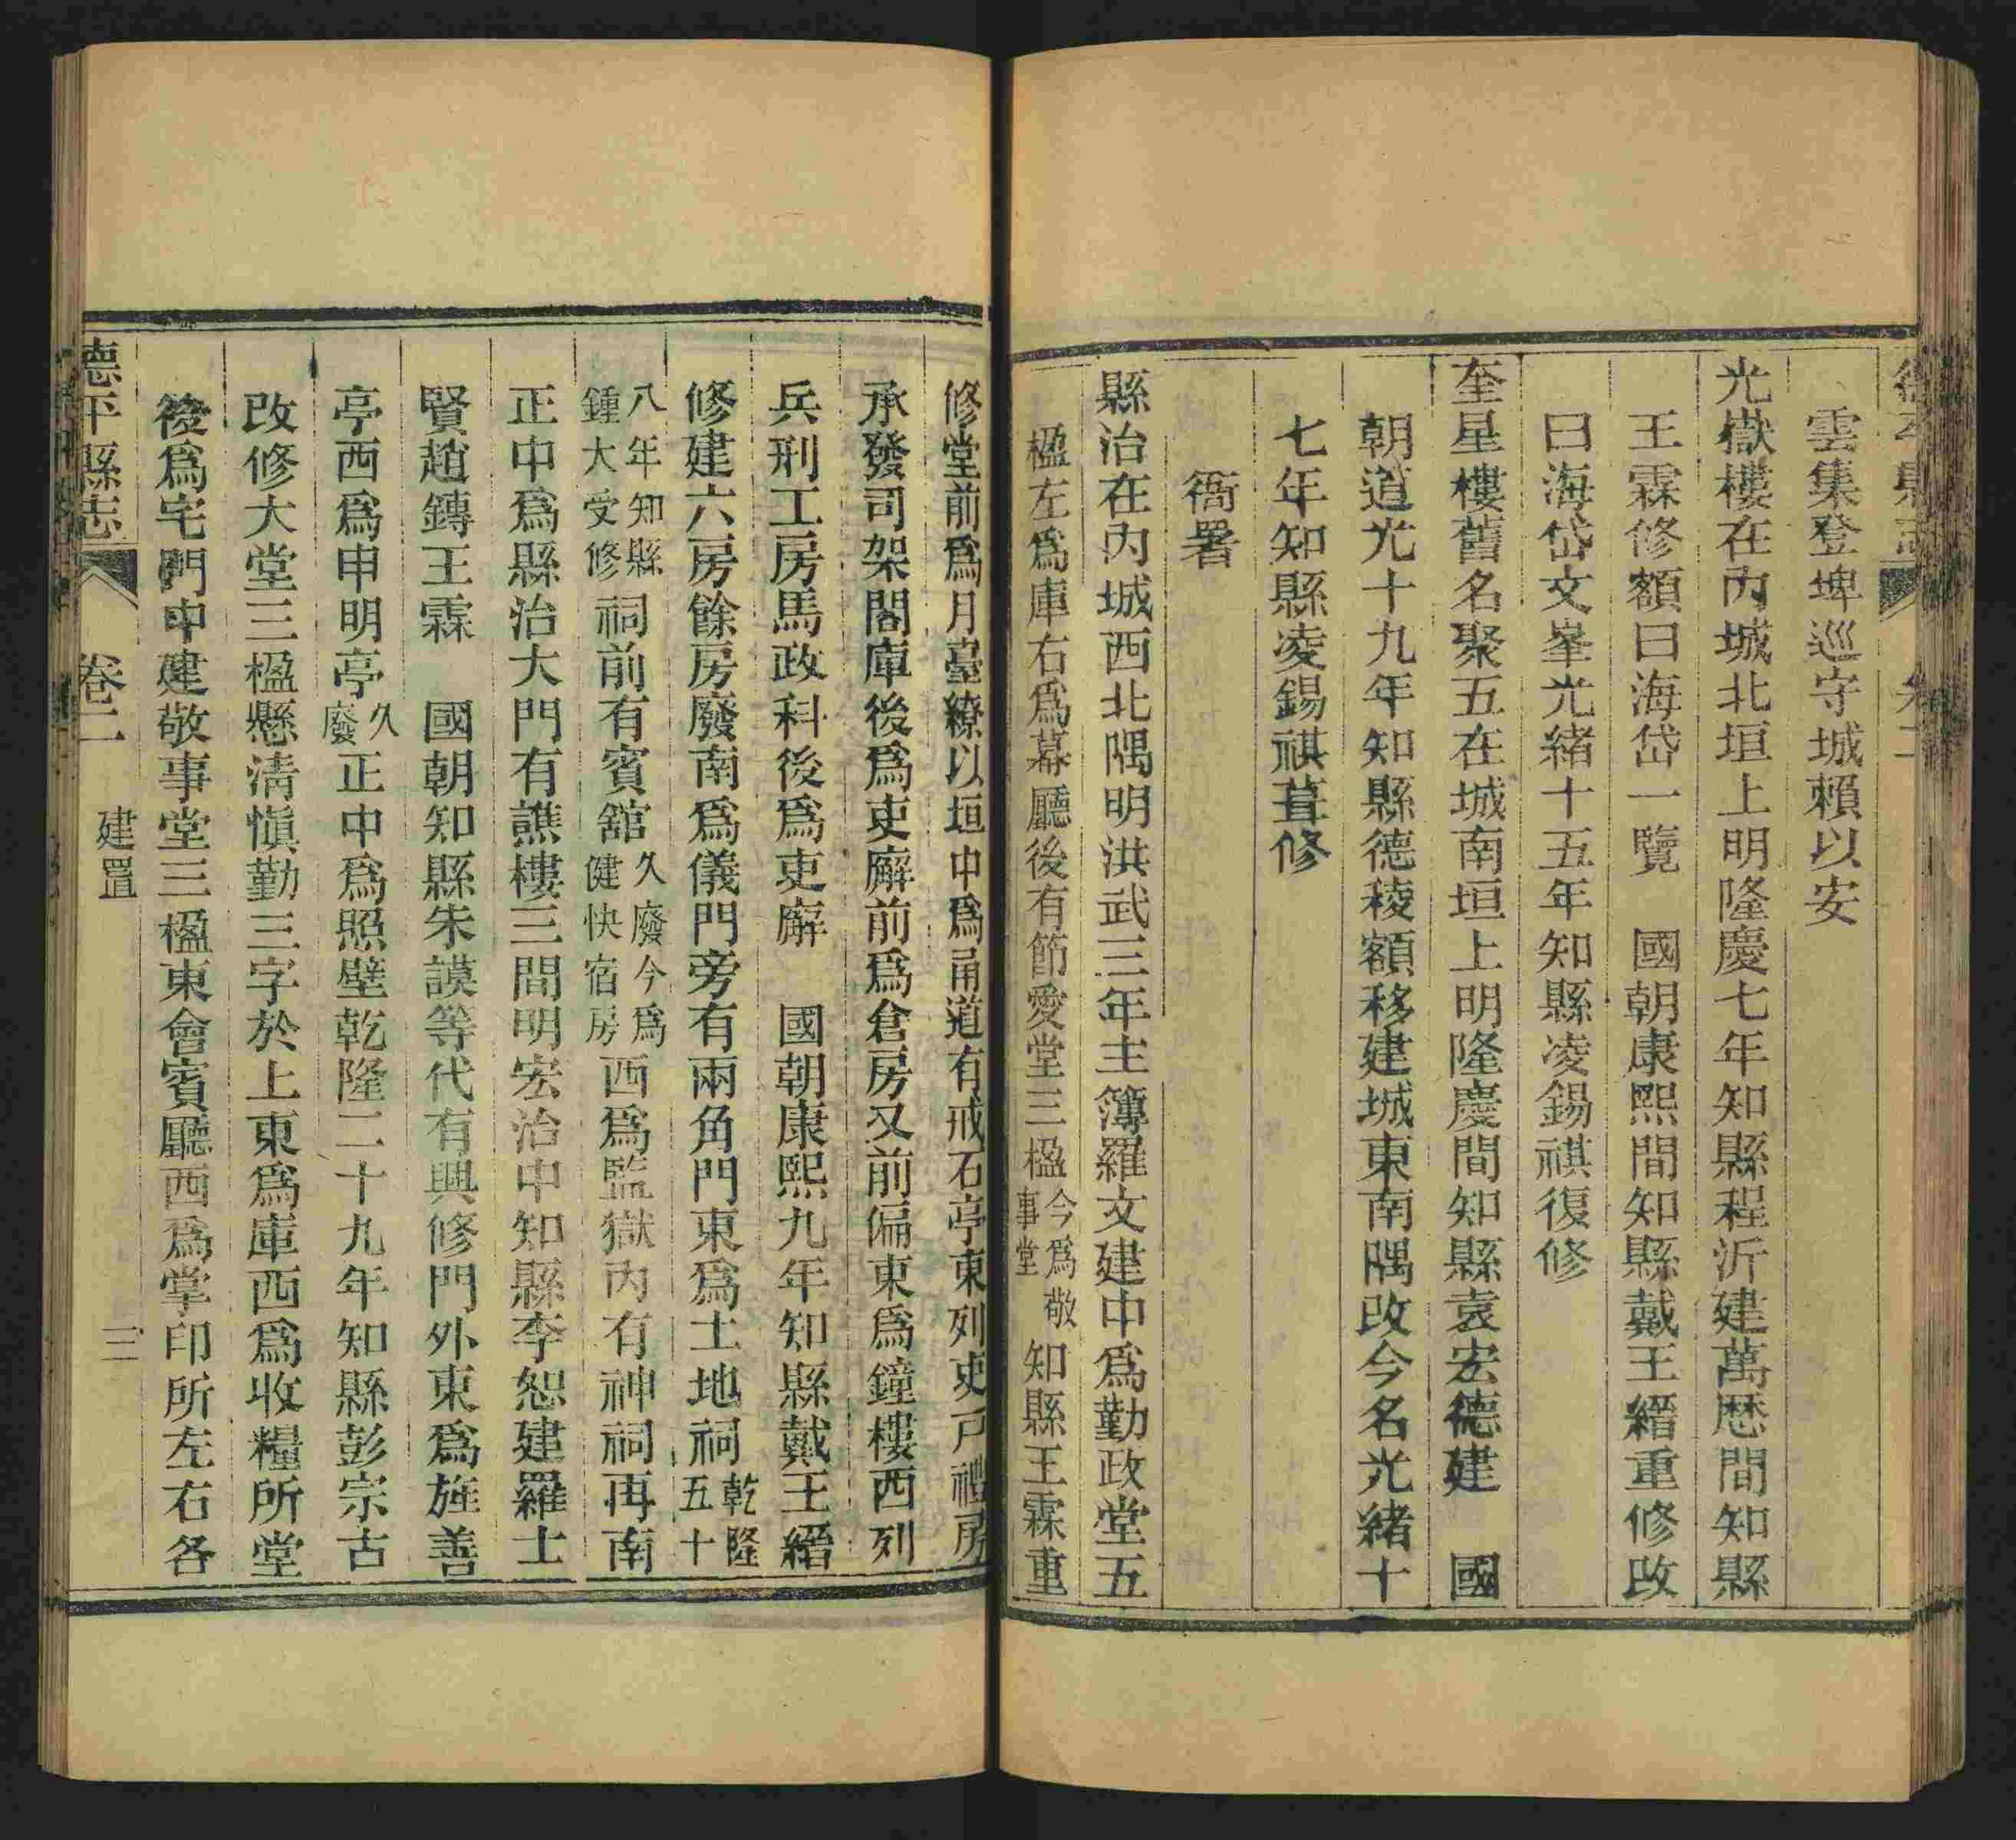 雲集登埤巡守城賴以安
光嶽樓在內城北垣上明隆慶七年知縣程沂建萬歷間知縣
王霖修額曰海岱一覽　國朝康熙間知縣戴王縉重修改
曰海岱文峯光緒十五年知縣凌錫祺復修
奎星樓舊名聚五在城南垣上明隆慶間知縣袁宏德建　國
朝道光十九年知縣德稜額移建城東南隅改今名光緒十
七年知縣凌錫祺葺修
衙署
縣治在內城西北隅明洪武三年主簿羅文建中爲勤政堂五
楹左爲庫右爲幕廳後有節愛堂三楹今爲敬事堂知縣王霖重
修堂前爲月臺繚以垣中爲甬道有戒石亭東列吏戶禮房
承發司架閣庫後爲吏廨前爲倉房又前偏東爲鐘樓西列
兵刑工房馬政科後爲吏廨　國朝康熙九年知縣戴王縉
修建六房餘房廢南爲儀門旁有兩角門東爲土地祠乾隆五十
八年知縣鍾大受修祠前有賓舘久廢今爲健快宿房西爲監獄內有神祠再南
正中爲縣治大門有譙樓三間明宏治中知縣李恕建羅士
賢趙鏄王霖　國朝知縣朱謨等代有興修門外東爲旌善
亭西爲申明亭久廢正中爲照壁乾隆二十九年知縣彭宗古
改修大堂三楹懸淸愼勤三字於上東爲庫西爲收糧所堂
後爲宅門中建敬事堂三楹東會賓廳西爲掌印所左右各
德平縣志　卷二　建置　三